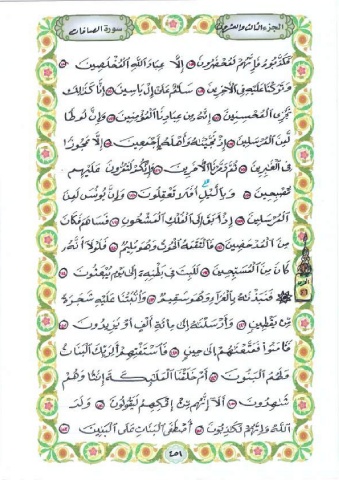 سورة الصافات الجزء الثالث والعشرون
فَكَذَّبُوهُ فَإِنَّهُمْ لَمُحْضَرُونَ إِلَّا عِبَادَ اللَّهِ الْمُخْلَصِينَ
وَتَرَكْنَا عَلَيْهِ فِي الْآخِرِينَ سَلَامٌ عَلَىٰ إِلْ يَاسِينَ إِنَّا كَذَٰلِكَ
نَجْزِي الْمُحْسِنِينَ إِنَّهُ مِنْ عِبَادِنَا الْمُؤْمِنِينَ وَإِنَّ لُوطًا
لَمِنَ الْمُرْسَلِينَ إِذْ نَجَّيْنَاهُ وَأَهْلَهُ أَجْمَعِينَ إِلَّا عَجُوزًا
فِي الْغَابِرِينَ ثُمَّ دَمَّرْنَا الْآخَرِينَ وَإِنَّكُمْ لَتَمُرُّونَ عَلَيْهِمْ
مُصْبِحِينَ وَبِاللَّيْلِ أَفَلَا تَعْقِلُونَ وَإِنَّ يُونُسَ لَمِنَ
الْمُرْسَلِينَ إِذْ أَبَقَ إِلَى الْفُلْكِ الْمَشْحُونِ فَسَاهَمَ فَكَانَ
مِنَ الْمُدْحَضِينَ فَالْتَقَمَهُ الْحُوتُ وَهُوَ مُلِيمٌ فَلَوْلَا أَنَّهُ
كَانَ مِنَ الْمُسَبِّحِينَ لَلَبِثَ فِي بَطْنِهِ إِلَىٰ يَوْمِ يُبْعَثُونَ
فَنَبَذْنَاهُ بِالْعَرَاءِ وَهُوَ سَقِيمٌ وَأَنْبَتْنَا عَلَيْهِ شَجَرَةً
مِنْ يَقْطِينٍ وَأَرْسَلْنَاهُ إِلَىٰ مِائَةِ أَلْفٍ أَوْ يَزِيدُونَ
فَآمَنُوا فَمَتَّعْنَاهُمْ إِلَىٰ حِينٍ فَاسْتَفْتِهِمْ أَلِرَبِّكَ الْبَنَاتُ
وَلَهُمُ الْبَنُونَ أَمْ خَلَقْنَا الْمَلَائِكَةَ إِنَاثًا وَهُمْ
شَاهِدُونَ أَلَا إِنَّهُمْ مِنْ إِفْكِهِمْ لَيَقُولُونَ وَلَدَ
اللَّهُ وَإِنَّهُمْ لَكَاذِبُونَ أَصْطَفَى الْبَنَاتِ عَلَى الْبَنِينَ
٤٥١